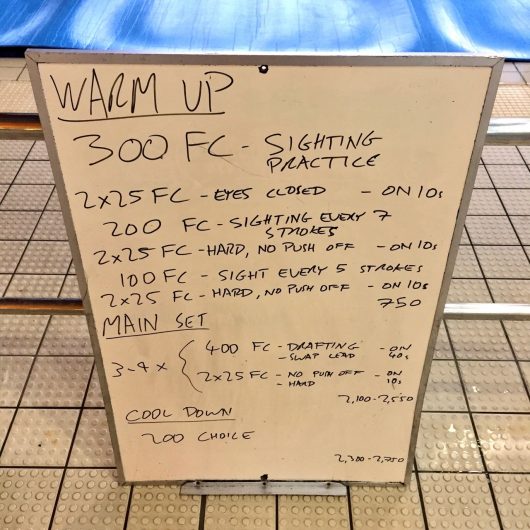 WARM UP
300 FC - SIGHTING
PRACTICE
2x25 FC - EYES CLOSED - ON 10s
200 FC - SIGHTING EVERY 7
STROKES
2x25 FC - HARD, NO PUSH OFF - ON 10s
100 FC - SIGHT EVERY 5 STROKES
2x25 FC - HARD, NO PUSH OFF - ON 10s
750
MAIN SET
3-4 x { 400 FC - DRAFTING - ON
- SWAP LEAD 40s
2x25 FC - NO PUSH OFF - ON
- HARD 10s
2,100 - 2,550
COOL DOWN
200 CHOICE
2,300 - 2,750